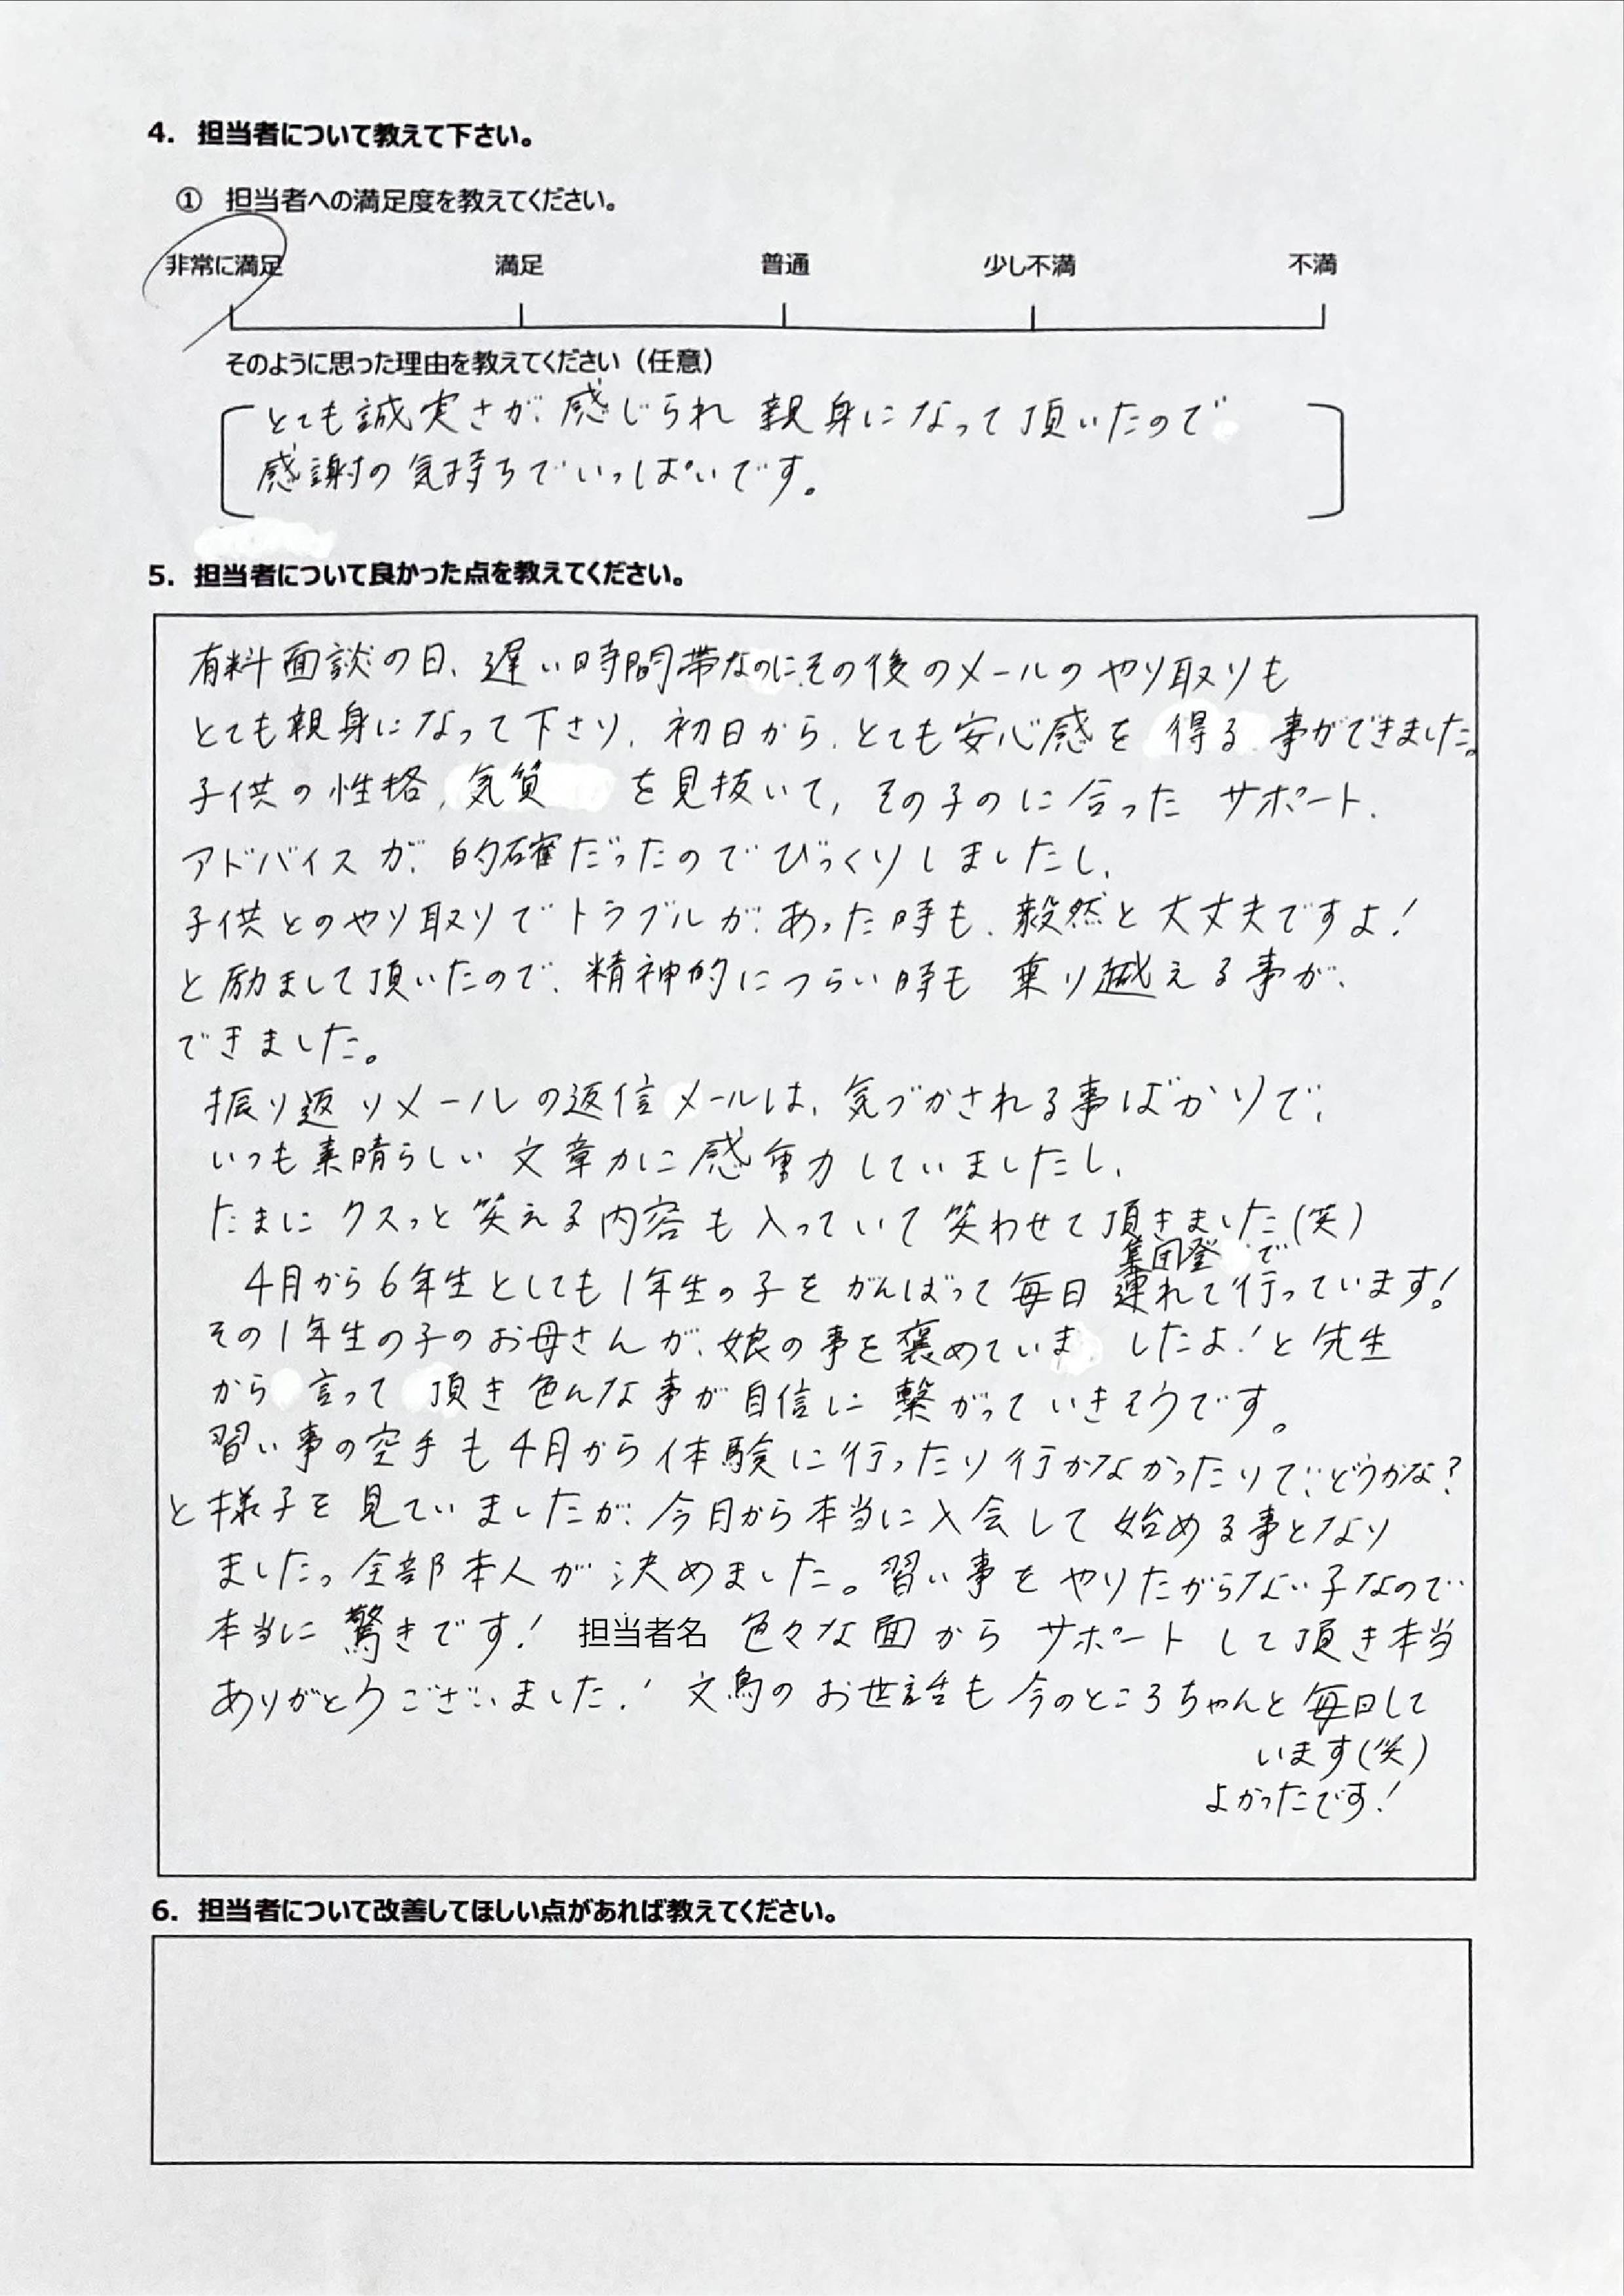 4. 担当者について教えて下さい。
① 担当者への満足度を教えてください。
非常に満足 満足 普通 少し不満 不満
そのように思った理由を教えてください（任意）
とても誠実さが、感じられ 親身になって頂いたので
感謝の気持ちでいっぱいです。
5. 担当者について良かった点を教えてください。
有料面談の日、遅い時間帯なのにその後のメールのやり取りも
とても親身になって下さり、初日から、とても安心感を 得る 事ができました。
子供の性格、気質 を見抜いて、その子のに合った サポート、
アドバイスが、的確だったのでびっくりしましたし、
子供とのやり取りでトラブルが、あった時も、毅然と大丈夫ですよ！
と励まして頂いたので、精神的につらい時も 乗り越える事が、
できました。
振り返りメールの返信メールは、気づかされる事ばかりで、
いつも素晴らしい文章力に感動していましたし、
たまにクスっと笑える内容も入っていて笑わせて頂きました(笑)
集団登 で
4月から6年生としても1年生の子をがんばって毎日 連れて行っています！
その1年生の子のお母さんが、娘の事を褒めていま したよ！と先生
から 言って 頂き色んな事が自信に繋がっていきそうです。
習い事の空手も4月から体験に行ったり行かなかったりで、どうかな？
と様子を見ていましたが、今月から本当に入会して始める事となり
ました。全部本人が決めました。習い事をやりたがらない子なので
本当に驚きです！ 担当者名 色々な面からサポートして頂き本当
ありがとうございました！文鳥のお世話も今のところちゃんと毎日して
います(笑)
よかったです！
6. 担当者について改善してほしい点があれば教えてください。